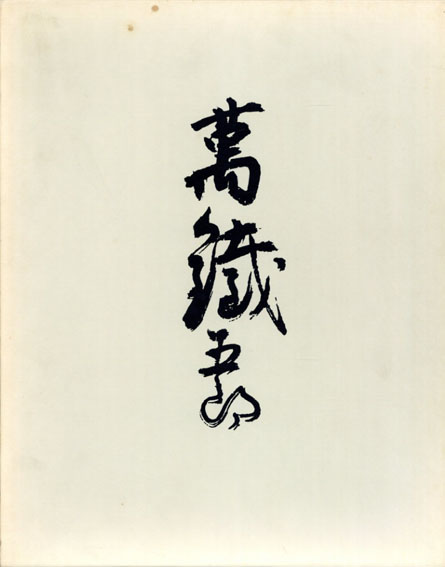 萬鐵五郎